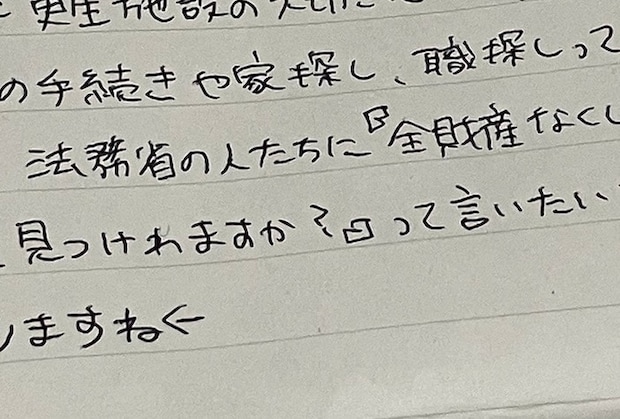 更生施設の
の手続きや家探し、職探しって
法務省の人たちに『全財産なくし
見つけれますか?』って言いたい
しますね←